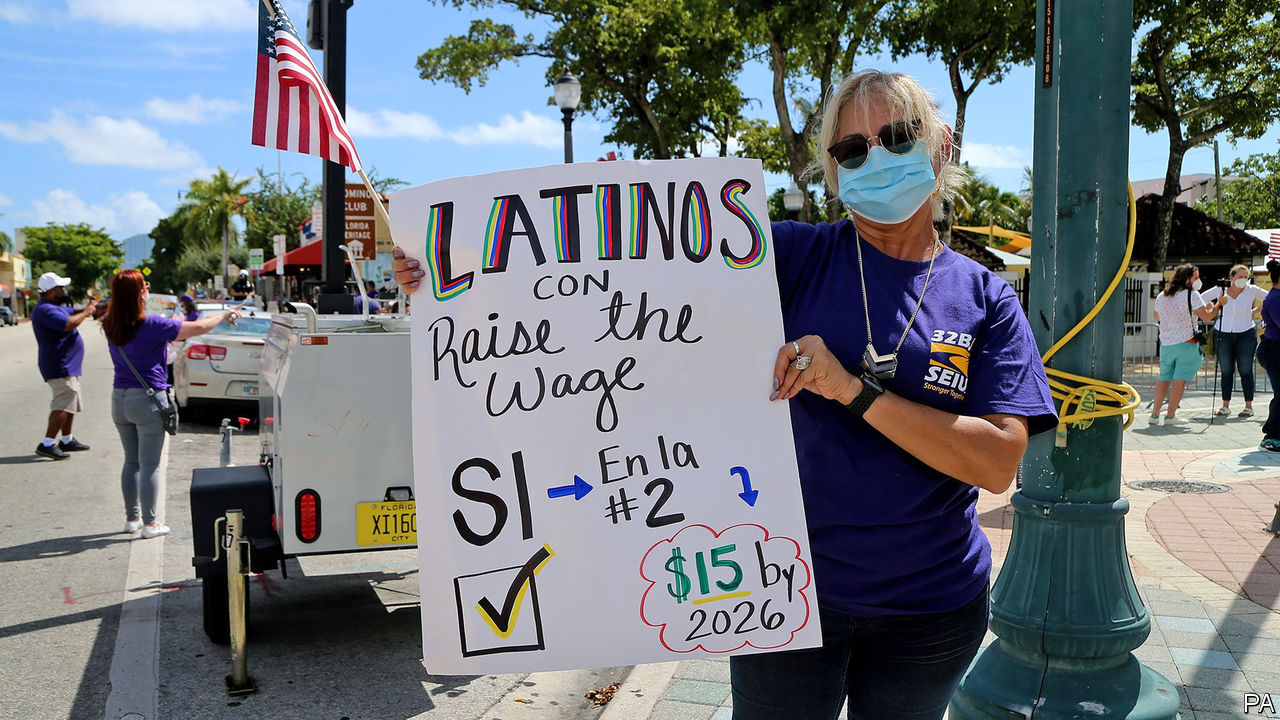 LATINOS
CON
Raise the
Wage
SI → En la
#2
$15 by
2026
32B
SEIU
Stronger Together
DOMINO
CLUB
FLORIDA
HERITAGE
FLORIDA
XI16
CITY
PA